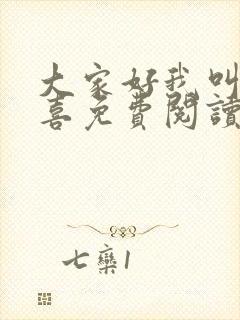 大家好我叫
喜免費閱讀
七欒1